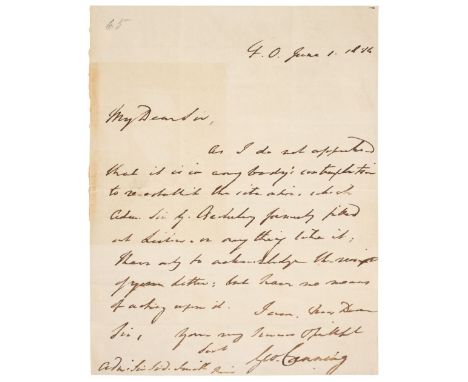 65
F. O. June 1. 18
My Dear Sir,
As I do not apprehend
that it is in any body's contemplation
to re-establish the situation, which
Adm. Sir G. Berkeley formerly filled
at Lisbon, or any thing like it;
I have only to acknowledge the receipt
of your letter; but have no means
of acting upon it. I am, My Dear
Sir, Your very humble
Servt
Geo. Canning
Adm. Sir Sid. Smith